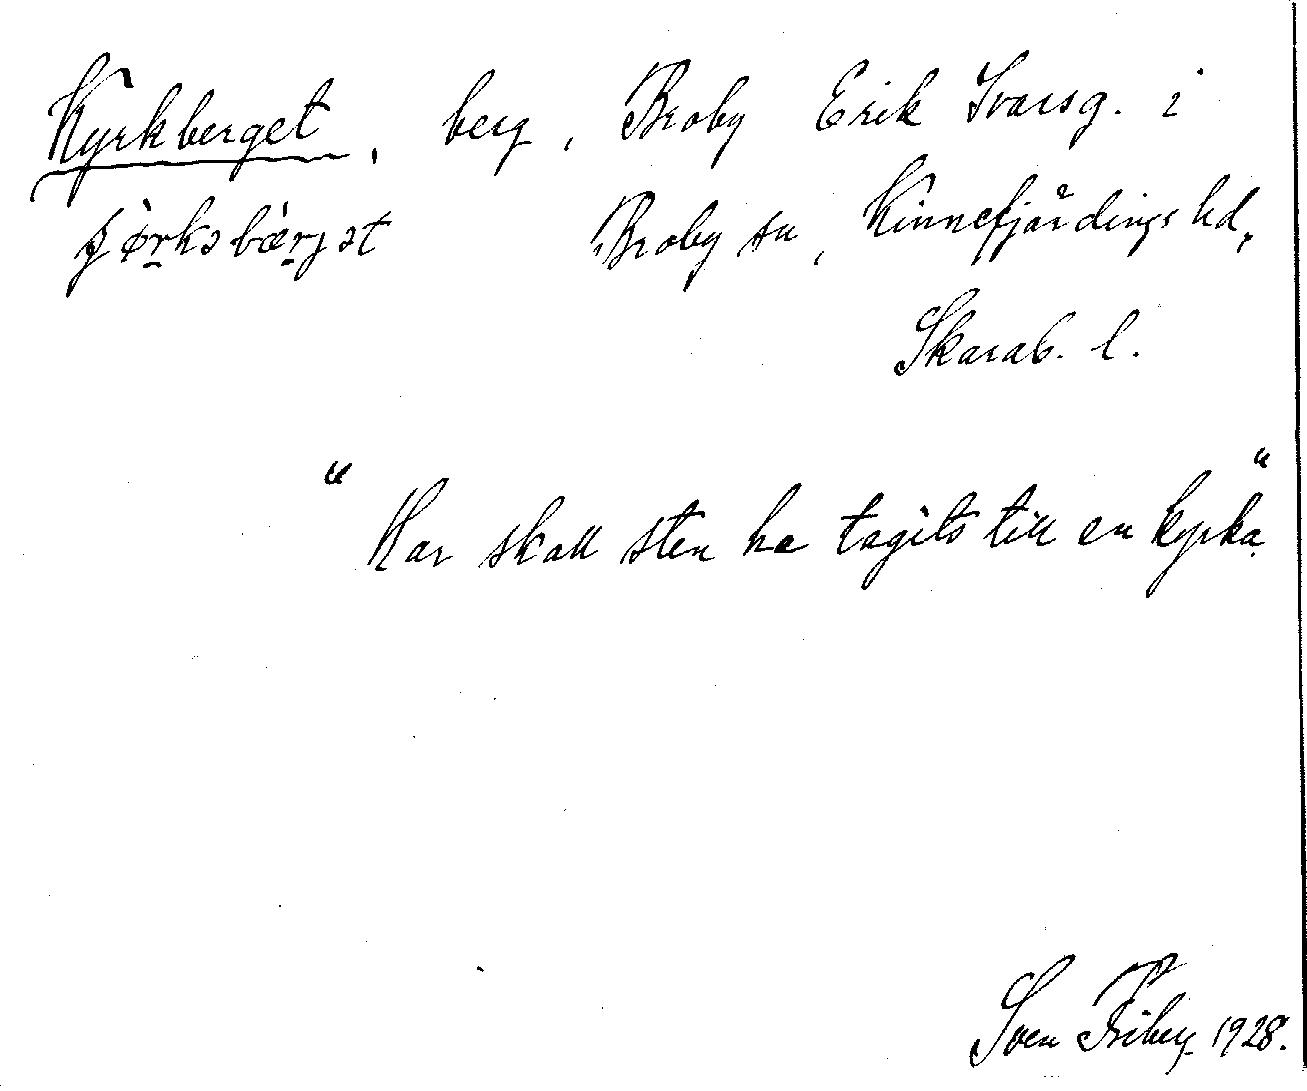 Kyrkberget, berg, Broby Erik Ivarsg. i
Broby sn, Kinnefjärdings hd,
Skarab. l.
"Här skall sten ha tagits till en kyrka."
Sven Friberg 1928.